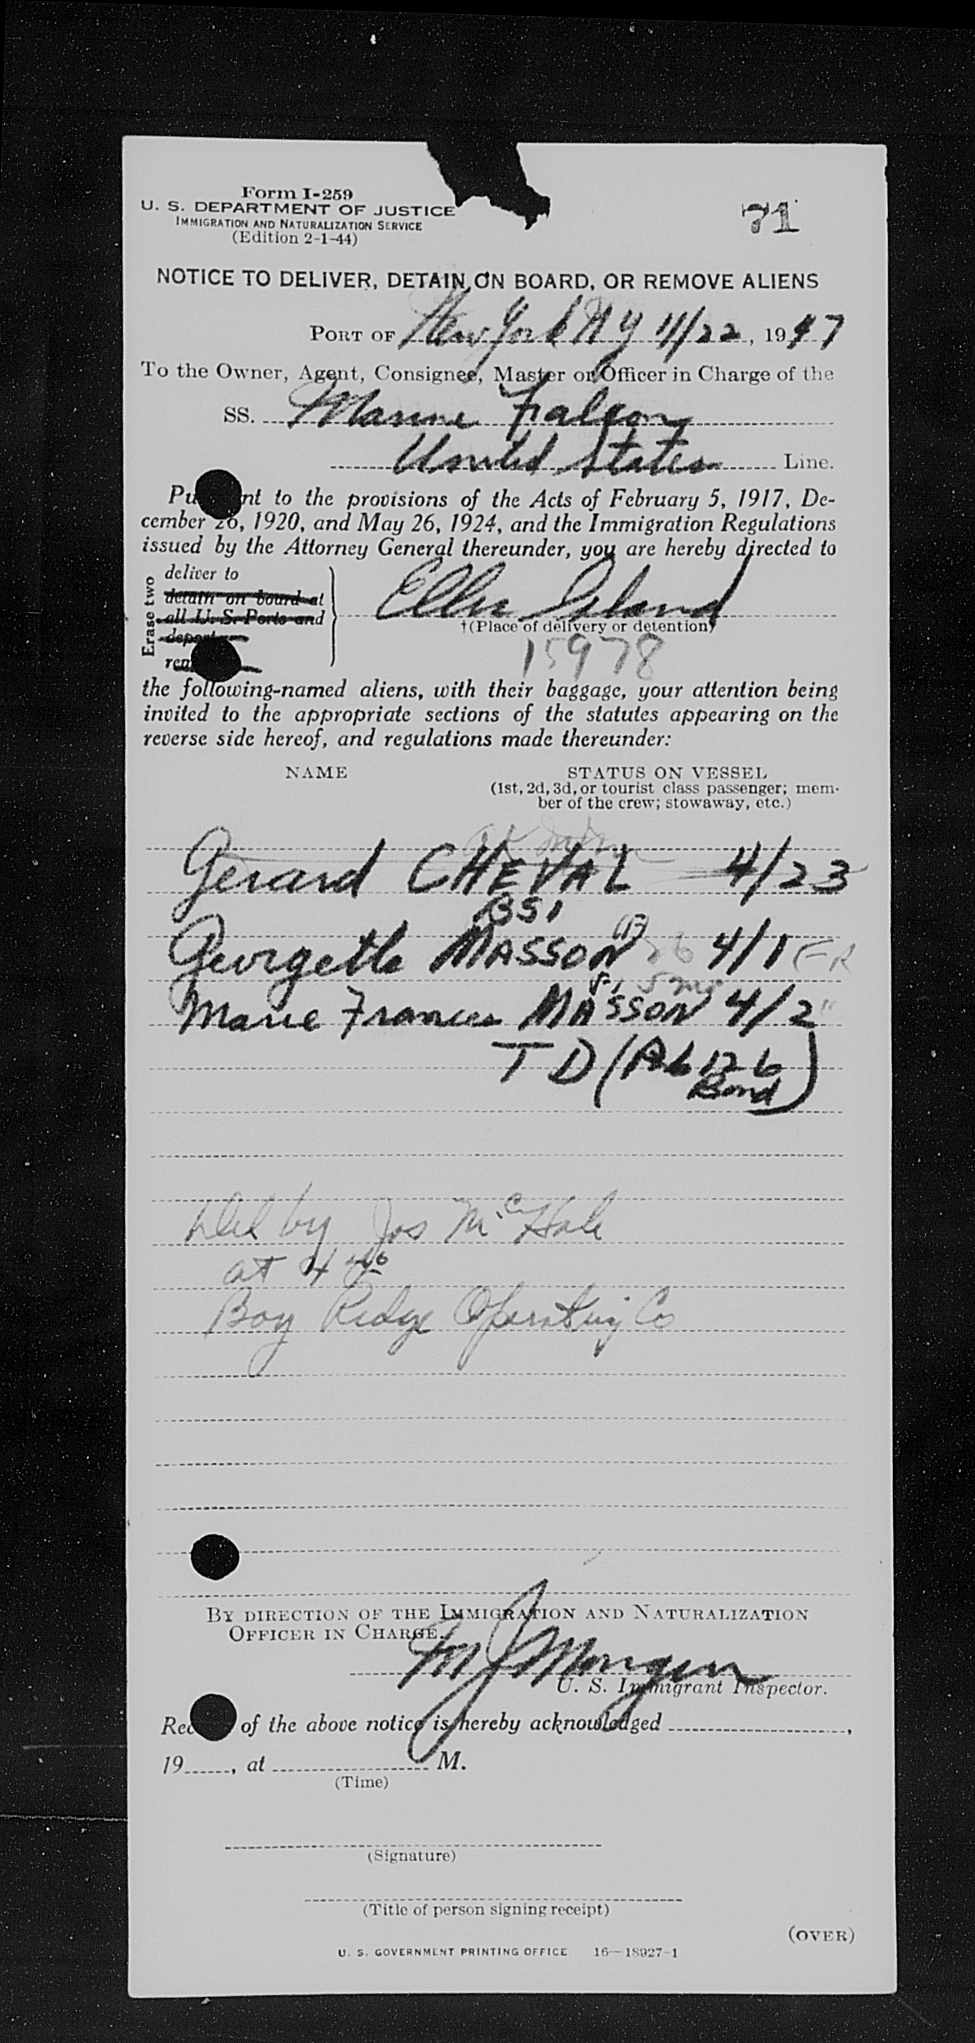 Form I-259
U. S. DEPARTMENT OF JUSTICE
IMMIGRATION AND NATURALIZATION SERVICE
(Edition 2-1-44)
71
NOTICE TO DELIVER, DETAIN ON BOARD, OR REMOVE ALIENS
PORT OF New York N Y 11/22, 1947
To the Owner, Agent, Consignee, Master or Officer in Charge of the
SS. Marine Falcon
United States Line.
Pu nt to the provisions of the Acts of February 5, 1917, De-
cember 26, 1920, and May 26, 1924, and the Immigration Regulations
issued by the Attorney General thereunder, you are hereby directed to
Erase two
deliver to
detain on board at
all U. S. Ports and
deport
rem
Ellis Island
†(Place of delivery or detention)
15978
the following-named aliens, with their baggage, your attention being
invited to the appropriate sections of the statutes appearing on the
reverse side hereof, and regulations made thereunder:
NAME STATUS ON VESSEL
(1st, 2d, 3d, or tourist class passenger; mem-
ber of the crew; stowaway, etc.)
Gerard CHEVAL 4/23
BSI
Georgette MASSON 26 4/1 FR
Marie Frances MASSON 4/2
T D (Ab 126
Bond)
Del by Jos McHale
at 4 40
Bay Ridge Operating Co
BY DIRECTION OF THE IMMIGRATION AND NATURALIZATION
OFFICER IN CHARGE.
M J Mongen
U. S. Immigrant Inspector.
Rec of the above notice is hereby acknowledged ,
19 , at M.
(Time)
(Signature)
(Title of person signing receipt)
(OVER)
U. S. GOVERNMENT PRINTING OFFICE 16—18927-1